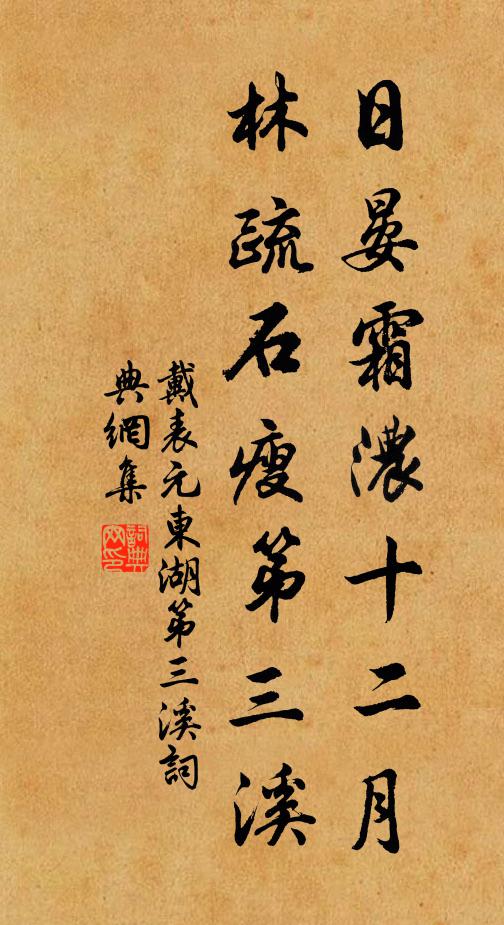 日晏霜濃十二月
林疏石瘦第三溪
戴表元東湖第三溪詞
典網集
詞典
网印